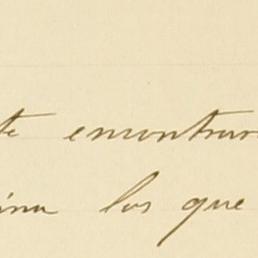 te encontrar
ina los que